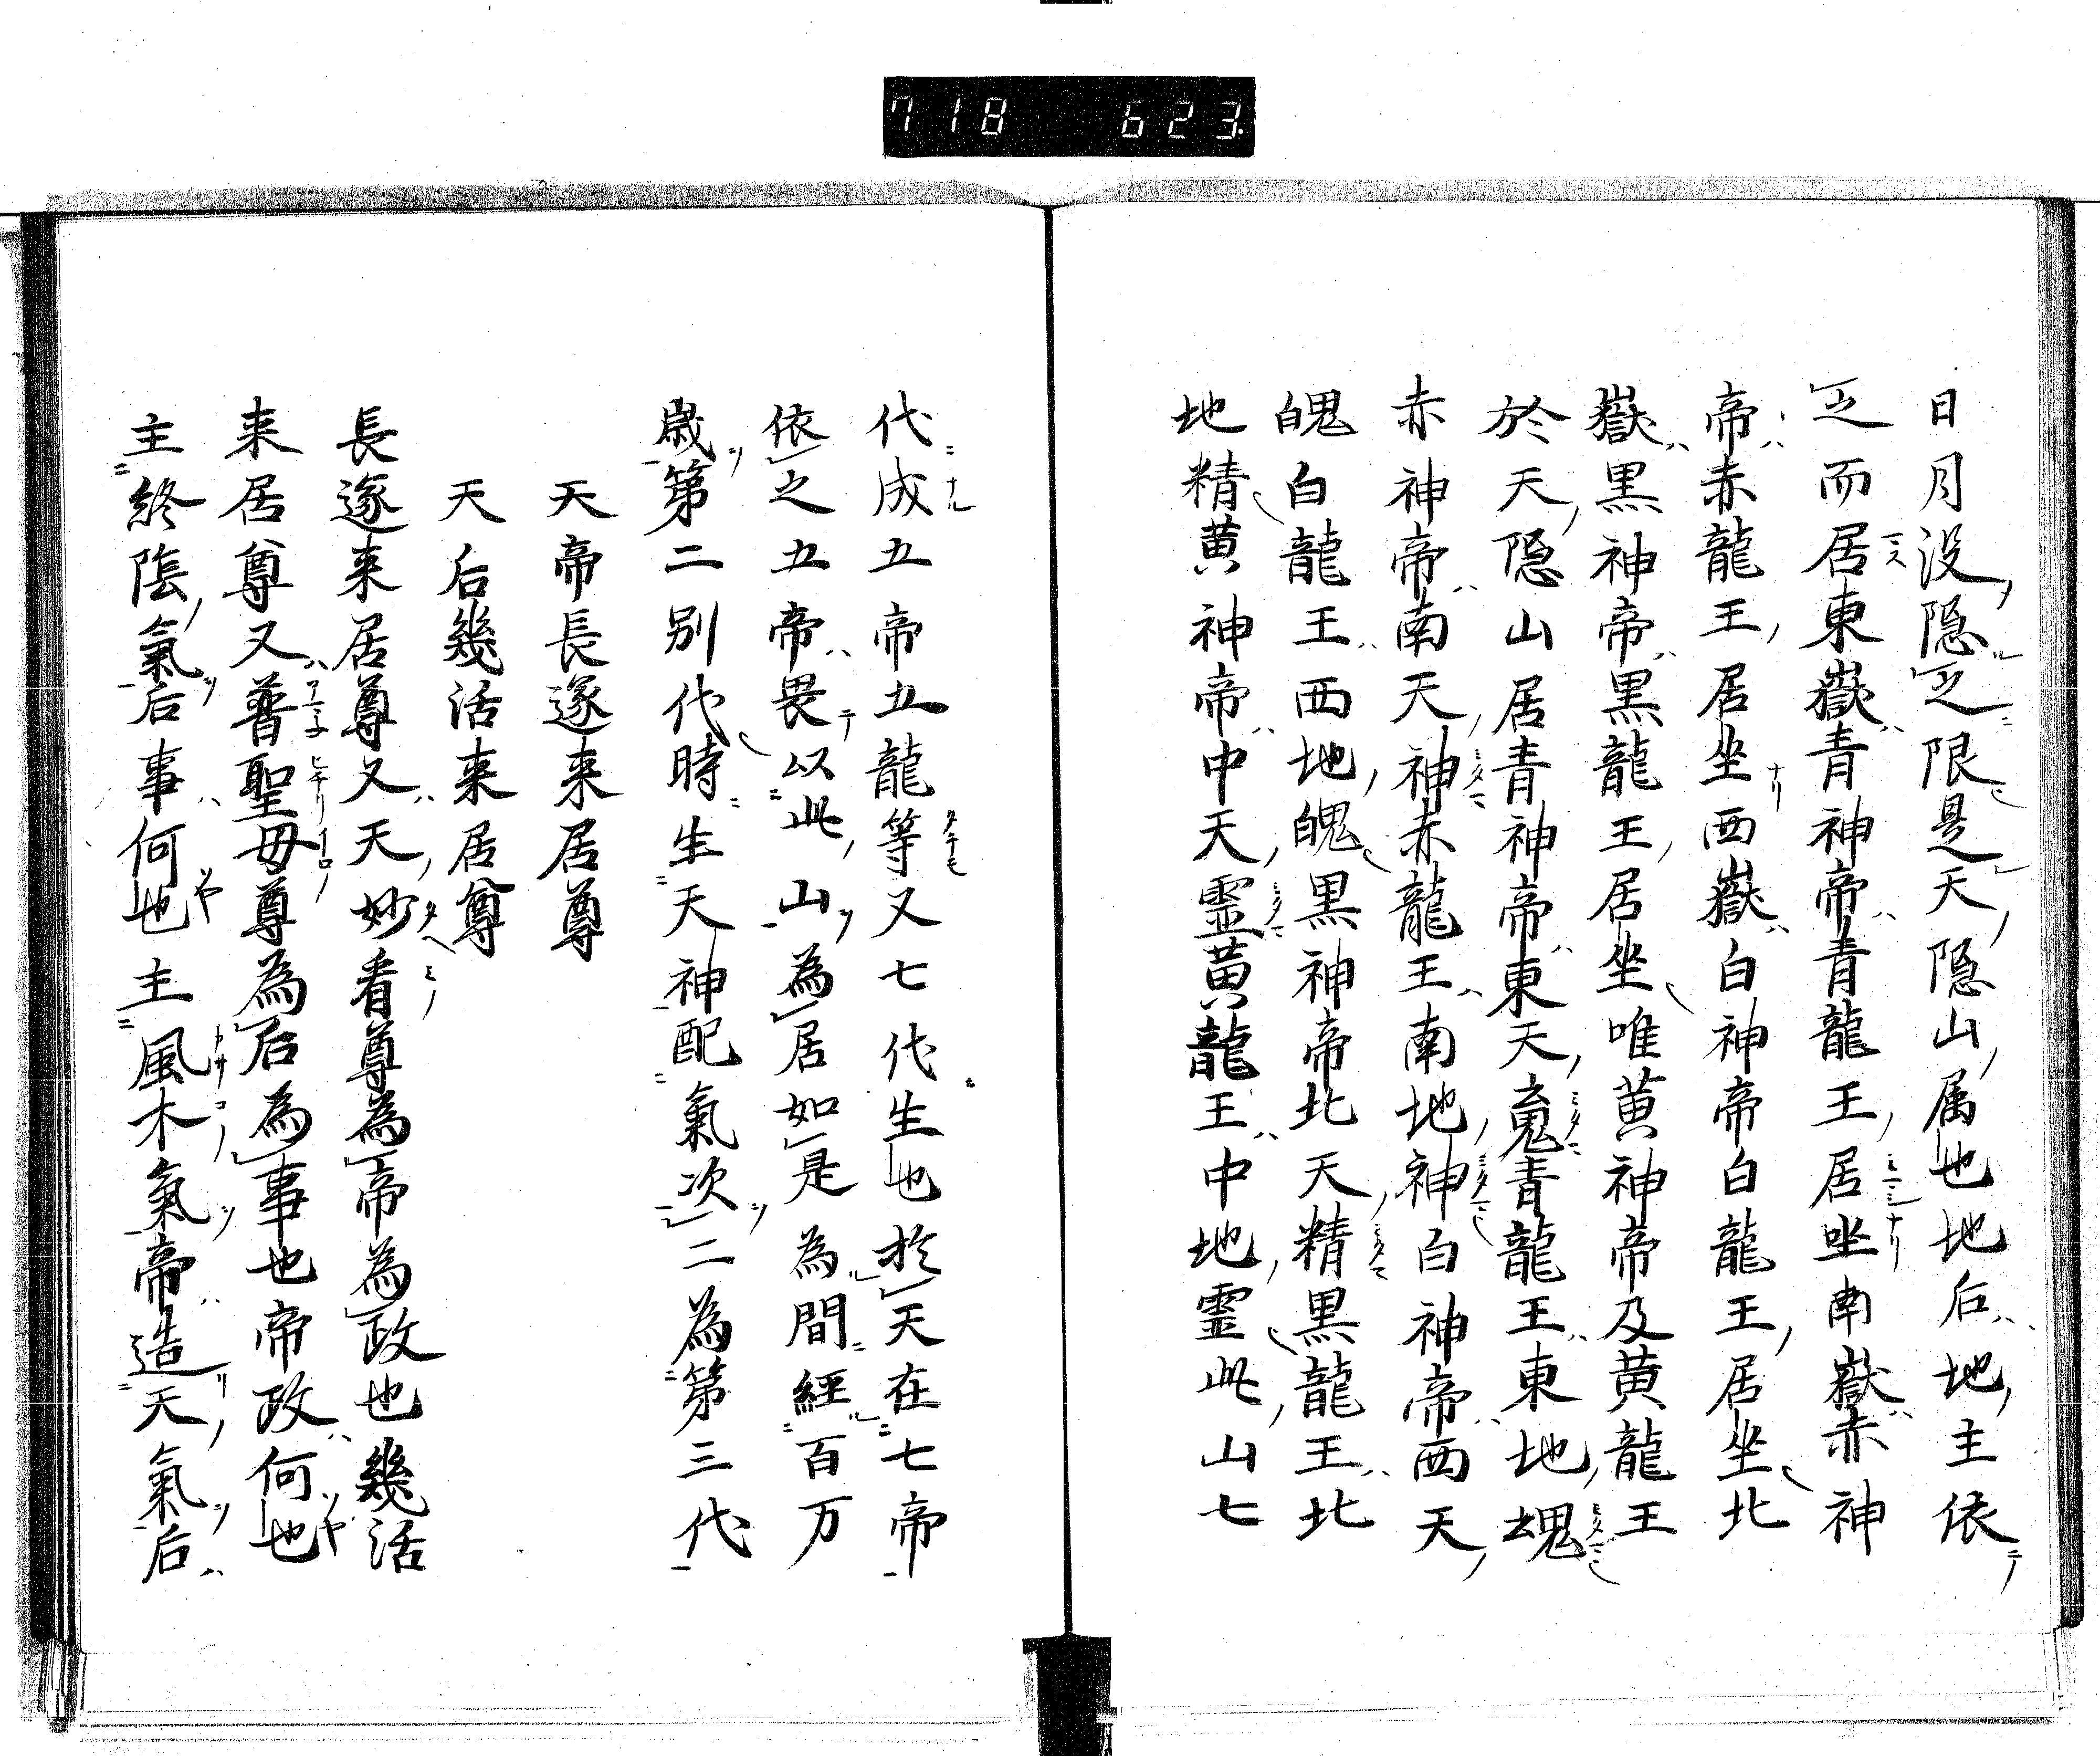 718 623
日月没隠之限是天隠山属也地后地主依
之而居東嶽青神帝青龍王居坐南嶽赤神
帝赤龍王居坐西嶽白神帝白龍王居坐北
嶽黒神帝黒龍王居坐唯黄神帝及黄龍王
於天隠山居青神帝東天嵬青龍王東地塊
赤神帝南天神赤龍王南地神白神帝西天
魄白龍王西地魄黒神帝北天精黒龍王北
地精黄神帝中天霊黄龍王中地霊此山七
代成五帝五龍等又七代生也於天在七帝
依之五帝畏以此山為居如是為間經百万
歳第二別代時生天神配氣次二為第三代
天帝長遂来居尊
天后幾活来居尊
長遂来居尊又天妙看尊為帝為政也幾活
来居尊又普聖毋尊為后為事也帝政何也
主終陰氣后事何也主風木氣帝造天氣后